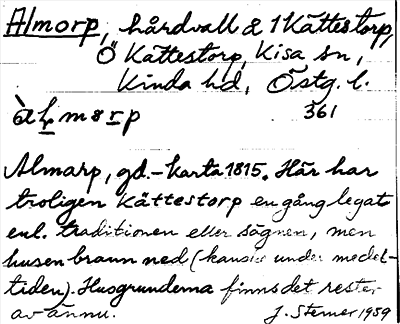 Almorp, hårdvall å 1 Kättestorp,
Ö Kättestorp, Kisa sn,
Kinda hd, Östg. l.
361
Almarp, gd.-karta 1815. Här har
troligen Kättestorp en gång legat
enl. traditionen eller sägnen, men
husen brann ned (kanske under medel-
tiden). Husgrunderna finns det rester
av ännu. J. Sterner 1959